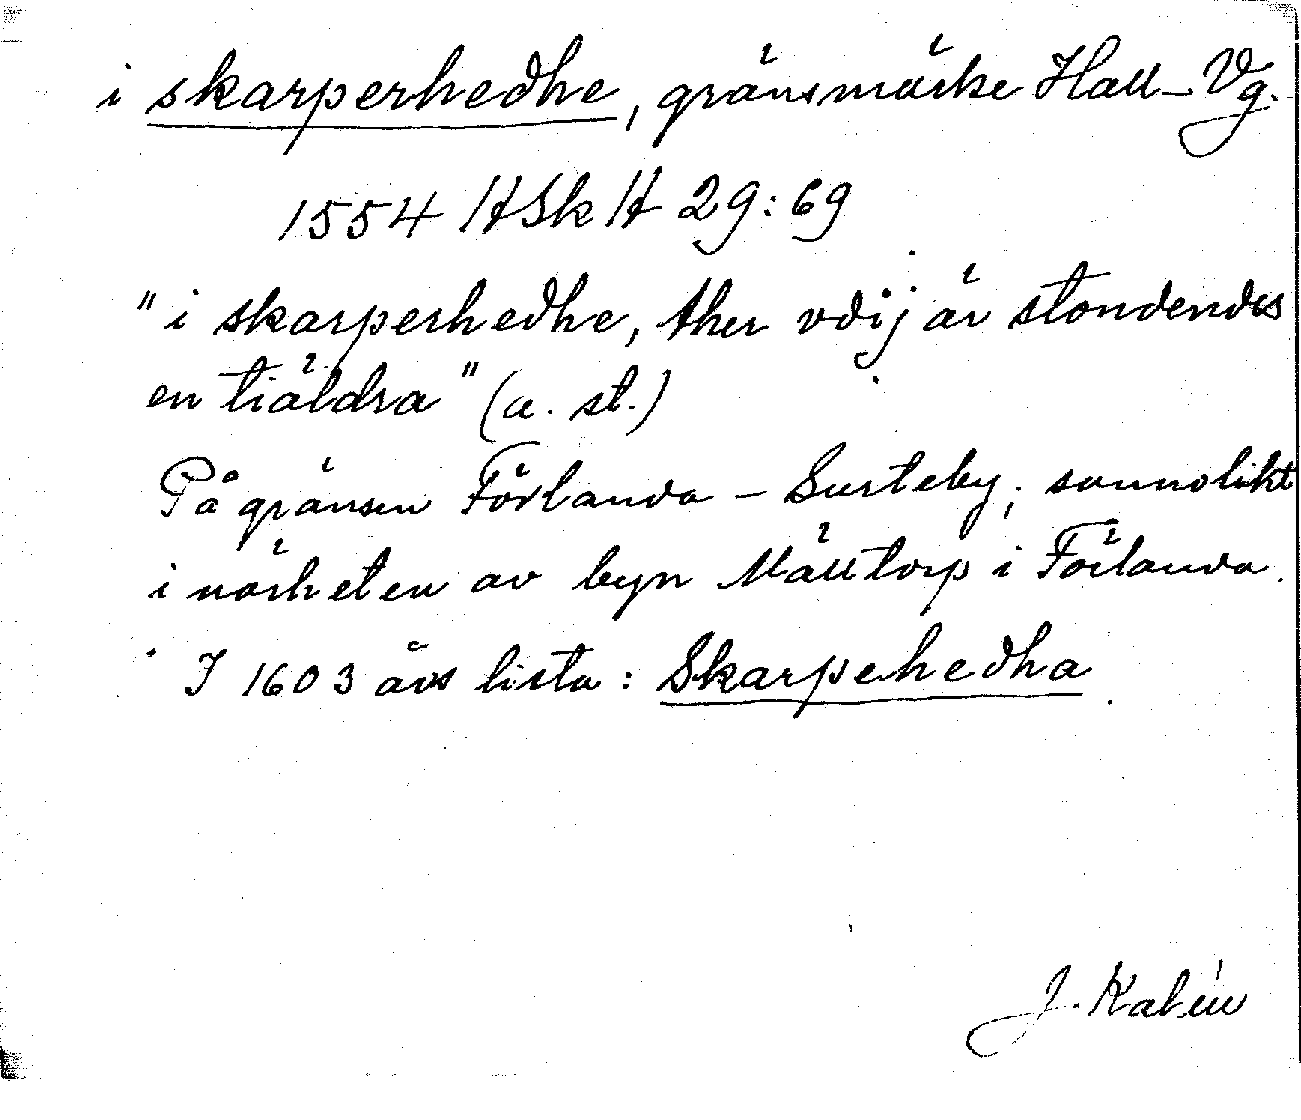 i skarperhedhe, gränsmärke Hall–Vg.
1554 HSkH 29:69
"i skarperhedhe, ther vdij är stondendes
en tiäldra" (a. st.)
På gränsen Förlanda – Surteby, sannolikt
i närheten av byn Mälltorp i Förlanda.
I 1603 års lista: Skarpehedha.
J. Kalén